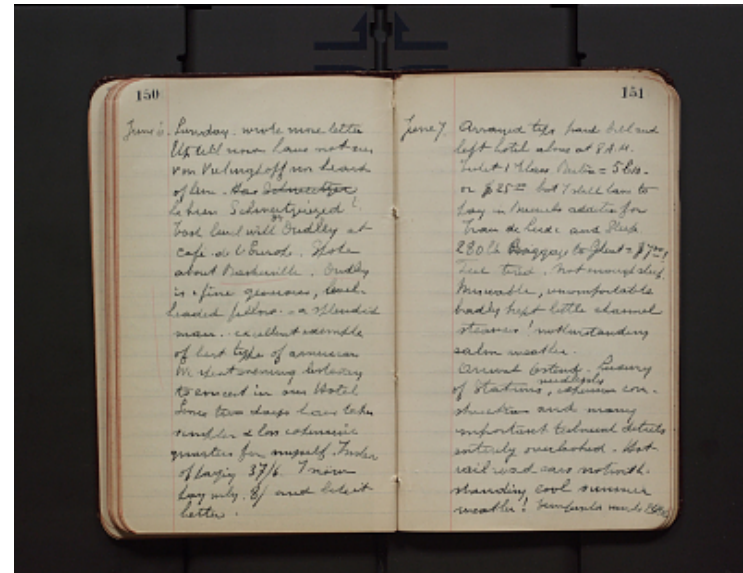 150
June 6. Sunday. wrote more letter
Up till now have not seen
von Vietinghoff nor heard
of him.
Took lunch with Dudley at
café de l'Europe. Spoke
about Baskerville. Dudley
is a fine generous, level-
headed fellow - a splendid
man - excellent example
of best type of american
We spent evening listening
to concert in our Hotel
Since two days have taken
simpler & less expensive
quarters for myself. Instead
of paying 37/6. I now
pay only 8/ and like it
better.
151
June 7. Arranged tips paid bill and
left hotel alone at 8 A.M.
Ticket 1st Class
or $25.00 but I shall have to
pay in Brussels addition for
Train de Luxe and Sleep.
280 lb Baggage to Ghent =
Feel tired. Not enough sleep.
Miserable, uncomfortable
badly kept little channel
steamer! notwithstanding
calm weather.
Arrived Ostend. Luxury
of Stations, needlessly expensive con-
struction and many
important technical details
entirely overlooked. Hot
railroad cars notwith-
standing cool summer
weather!